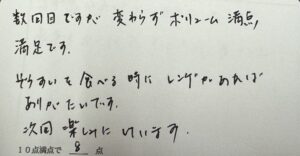 数回目ですが 変わらず ボリューム 満点,
満足です.
ぞうすいを 食べる 時に レンゲがあれば
ありがたいです.
次回 楽しみに けいます.
10点満点で 8 点